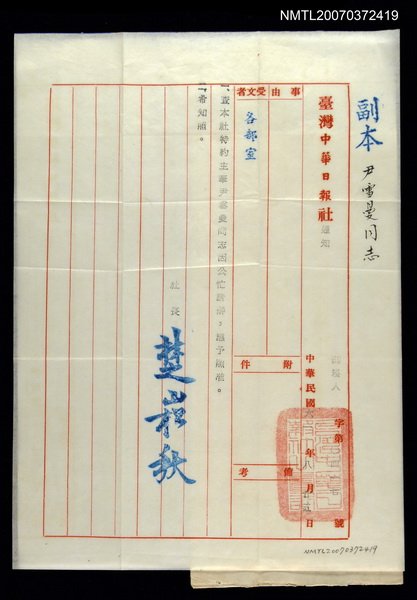 NMTL20070372419
副本
尹雪曼同志
臺灣中華日報社通知
中華民國 年 月 日
字第 號
事由
附件
備考
受文者
各部室
一、查本社特約主筆尹雪曼同志因公忙請辭,應予照准。
二、希知照。
社長
楚崧秋
NMTL20070372419